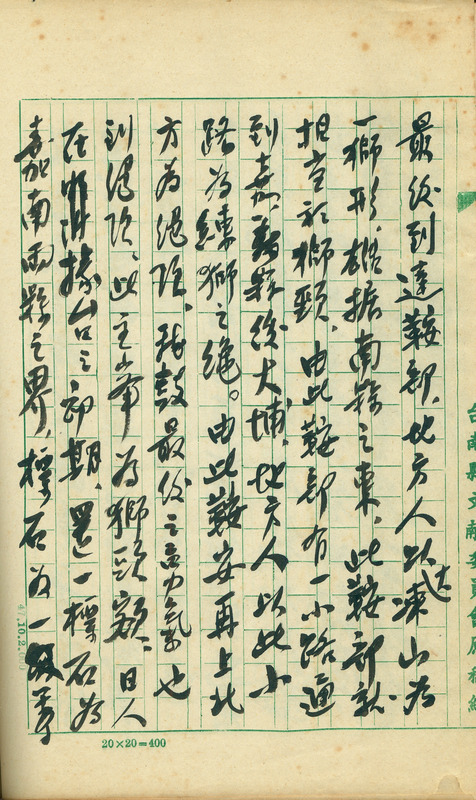 最後到達鞍部，地方人以大凍山為
一獅形，雄據南縣之東，此鞍部就
相當於獅頸，由此鞍部有一小路通
到嘉義縣後大埔，地方人以此小
路為練獅之繩。由此鞍安再上北
方為絕頂，我鼓最後之勇氣也
到絕頂，此主峯為獅頭額，日人
在佔據台之初期，置一標石為
嘉南兩縣之界，標石為一
台南縣文獻委員會原稿紙
47.10.2.
20×20=400